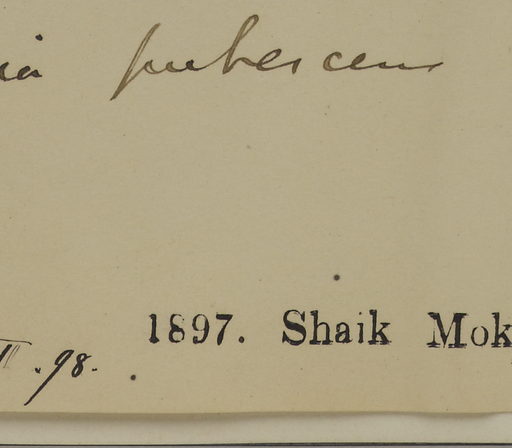 ia pubescens
1897. Shaik Mok
.98.